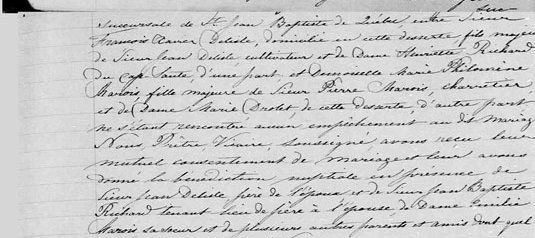 Suc-
succursale de St Jean Baptiste de Québec, entre Sieur
François Xavier Delisle, domicilié en cette desserte fils majeur
de Sieur Jean Delisle cultivateur et de Dame Henriette Richard
du Cap Santé, d'une part, et Demoiselle Marie Philomène
Marois, fille majeure de Sieur Pierre Marois, charretier,
et de Dame Marie Drolet, de cette desserte, d'autre part
ne s'étant rencontré aucun empêchement au dit mariage
Nous, Prêtre, Vicaire, soussigné, avons reçu leur
mutuel consentement de mariage et leur avons
donné la bénédiction nuptiale en présence de
Sieur Jean Delisle père de l'époux et de Sieur Jean Baptiste
Richard tenant lieu de père à l'épouse, de Dame Emilie
Marois sa soeur et de plusieurs autres parents et amis dont quel